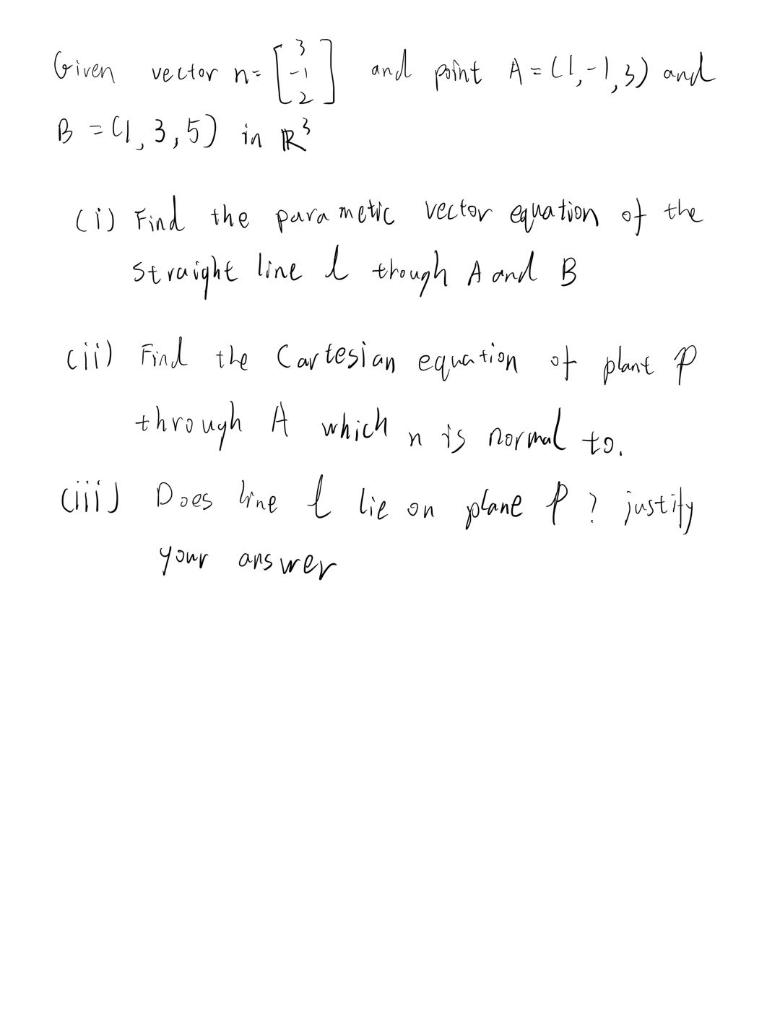 Given vector n= [3 -1 2] and point A = (1,-1,3) and
B = (1, 3, 5) in ℝ³
(i) Find the parametic vector equation of the
straight line l though A and B
(ii) Find the Cartesian equation of plant P
through A which n is normal to.
(iii) Does line l lie on plane P? justify
your answer